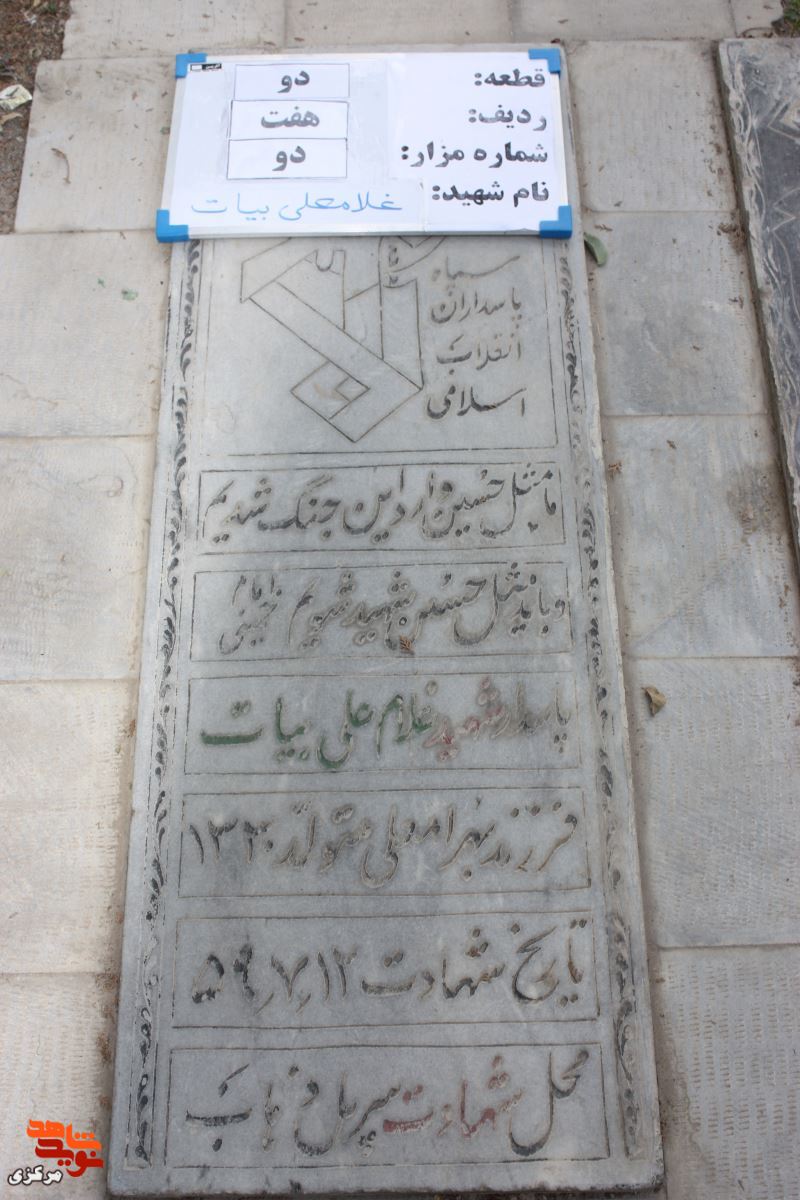 قطعه: دو
ردیف: هفت
شماره مزار: دو
نام شهید: غلامعلی بیات
سپاه
پاسداران
انقلاب
اسلامی
ما مثل حسین وارد این جنگ شدیم
و باید مثل حسین شهید شویم امام خمینی
پاسدار شهید غلام علی بیات
فرزند بهرامعلی متولد ۱۳۳۰
تاریخ شهادت ۵۹٫۷٫۱۲
محل شهادت سرپل ذهاب
نوید شاهد
مرکزی